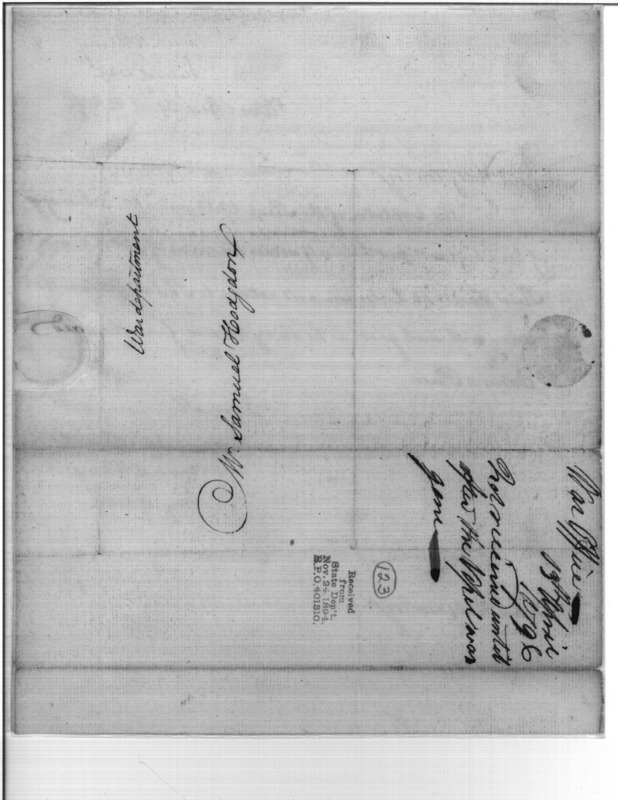 War department
Mr Samuel Hodgdon
War Office
19th April
1796
Not received until
after the Vessel was
gone
(123)
Received
from
State Dep't.
Nov. 24, 1894.
R.P.O. 401810.